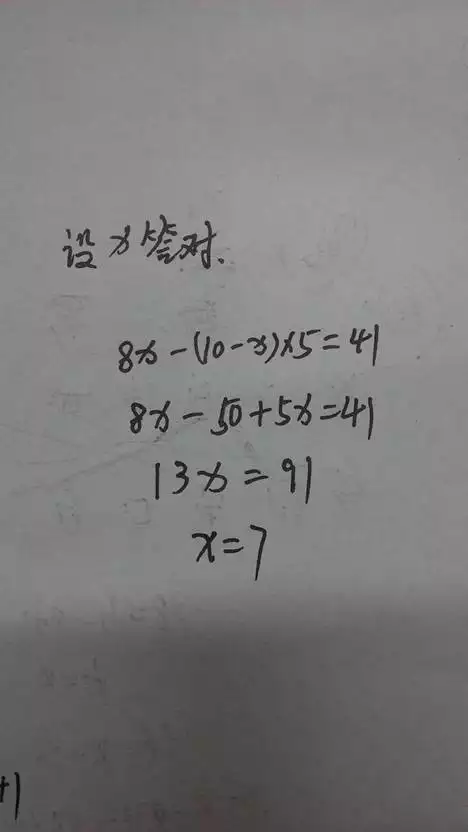 设x答对.
8x-(10-x)×5=41
8x-50+5x=41
13x=91
x=7
+1